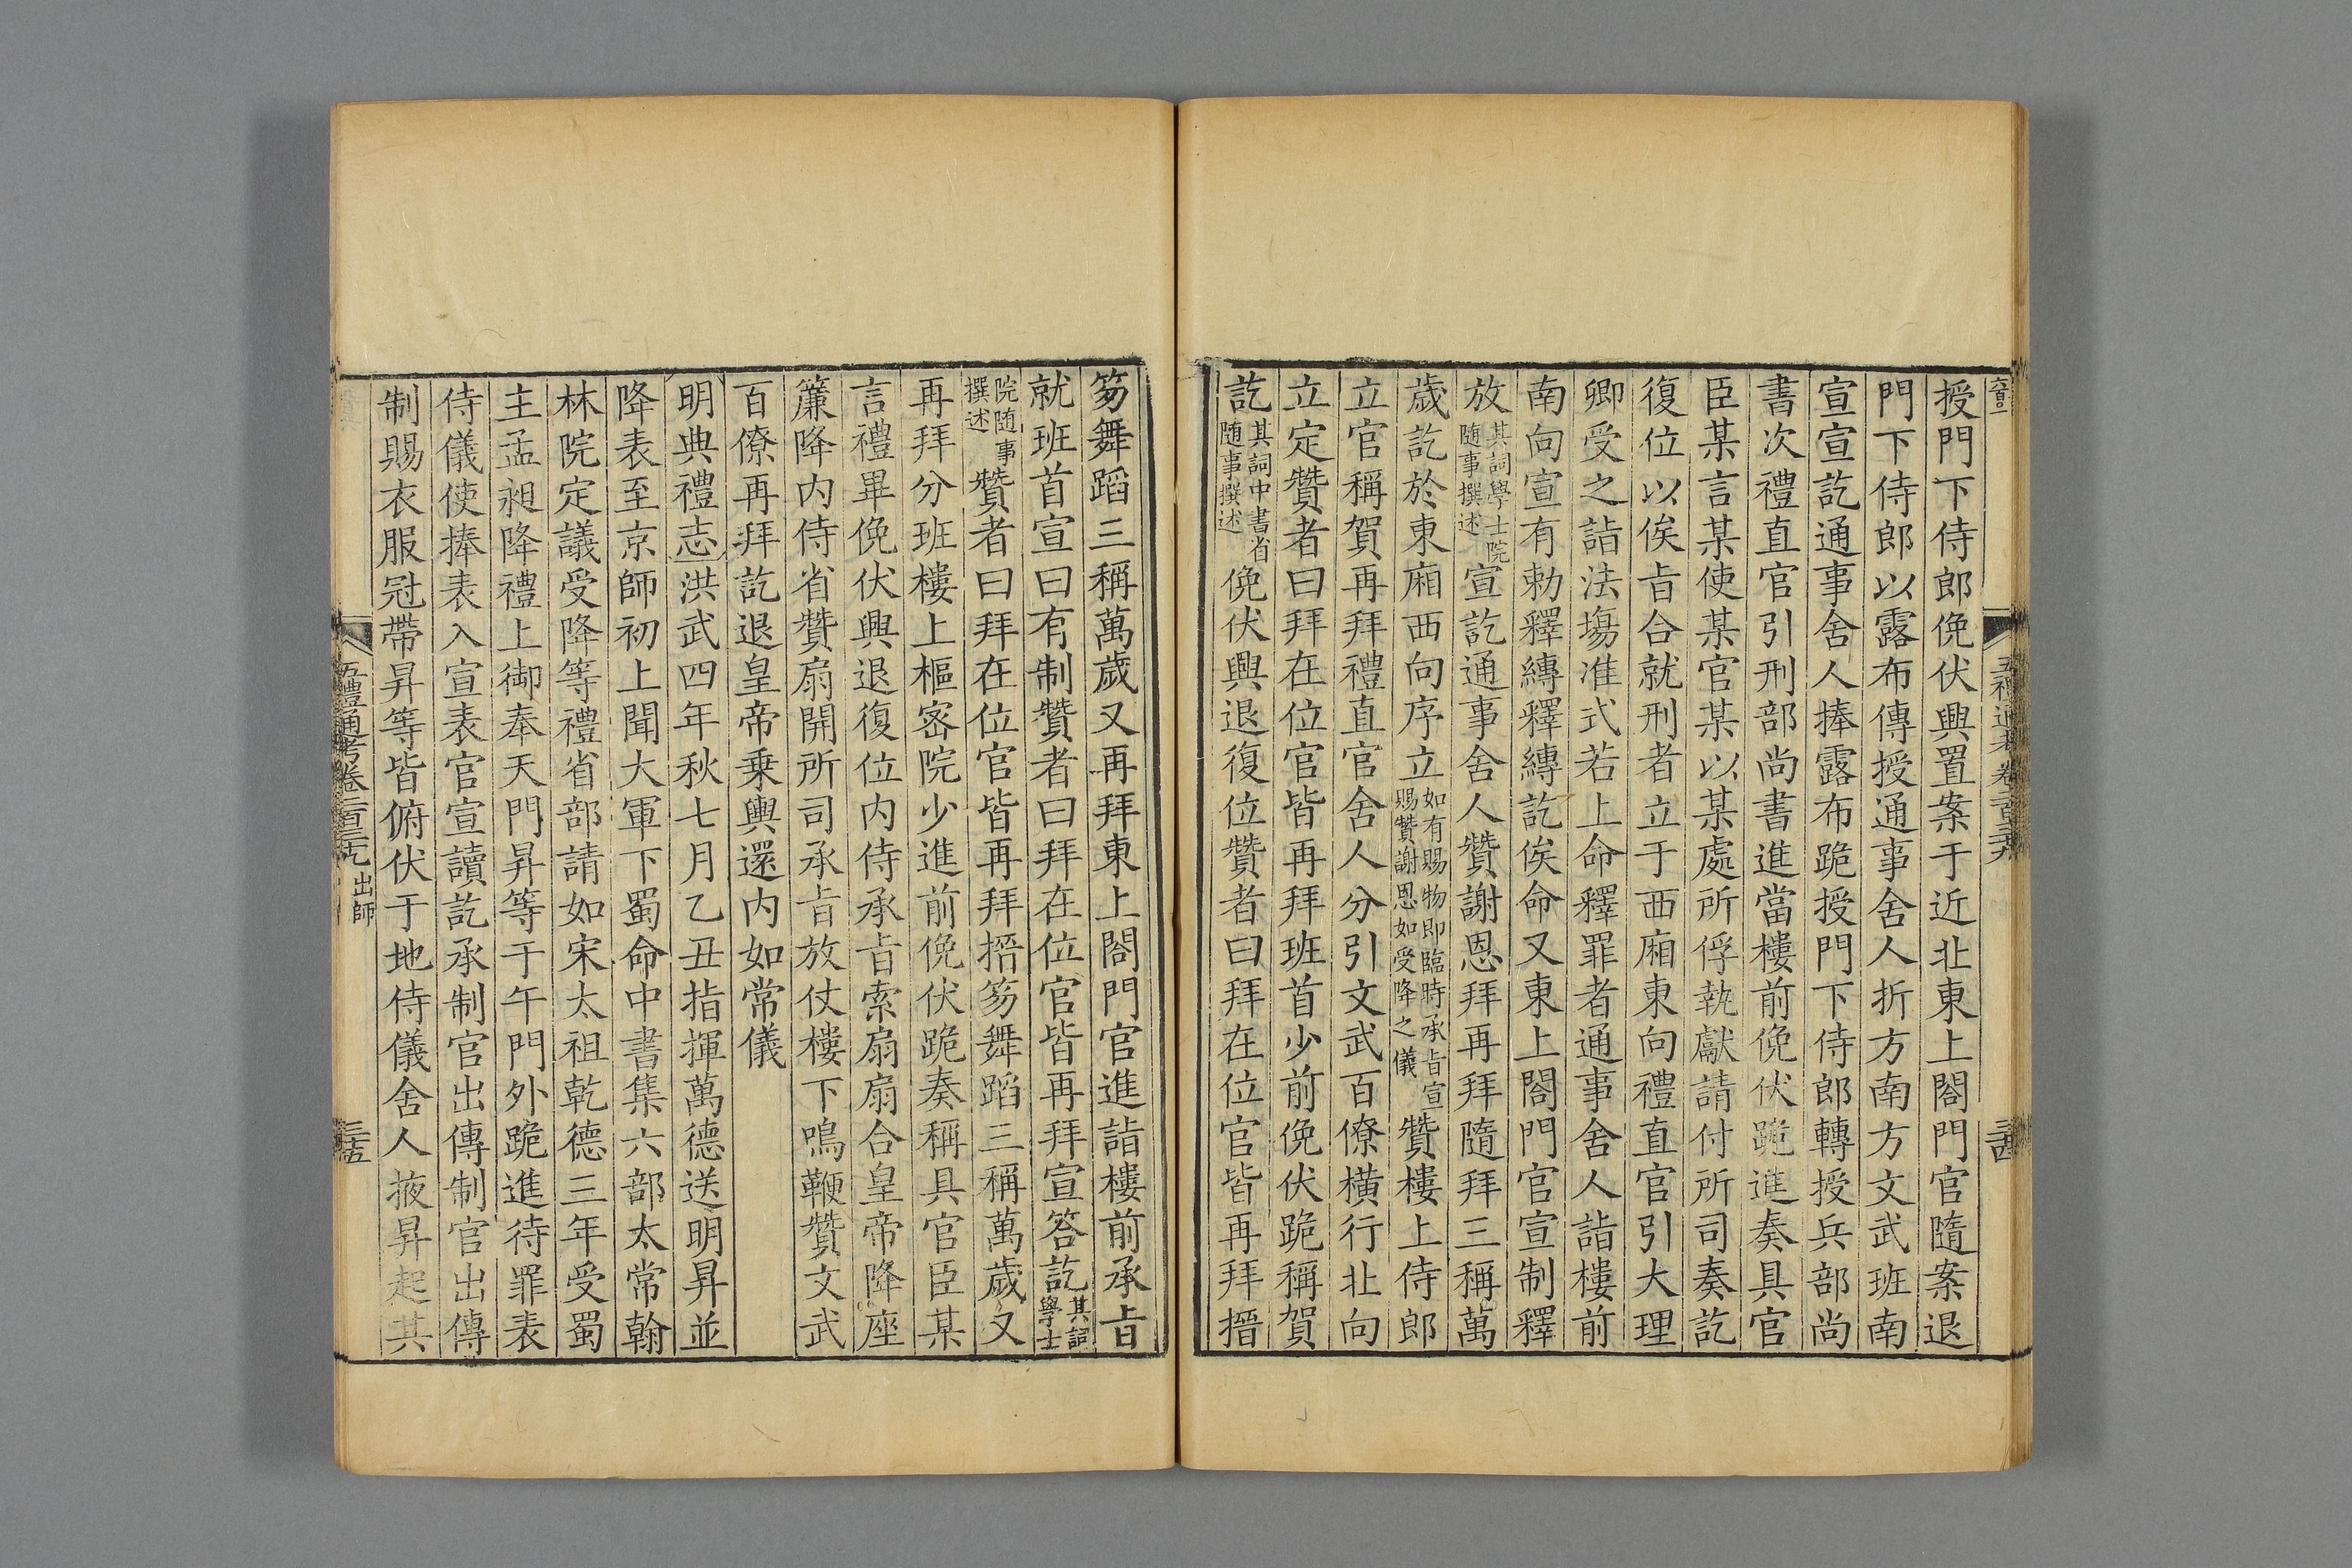 授門下侍郎俛伏興置案于近北東上閤門官隨案退
門下侍郎以露布傳授通事舍人折方南方文武班南
宣宣訖通事舍人捧露布跪授門下侍郎轉授兵部尚
書次禮直官引刑部尚書進當樓前俛伏跪進奏具官
臣某言某使某官某以某處所俘執獻請付所司奏訖
復位以俟㫖合就刑者立于西廂東向禮直官引大理
卿受之詣法塲准式若上命釋罪者通事舍人詣樓前
南向宣有勅釋縳釋縳訖俟命又東上閤門官宣制釋
放其詞學士院随事撰述宣訖通事舍人贊謝恩拜再拜隨拜三稱萬
歲訖於東廂西向序立如有賜物即臨時承㫖宣賜贊謝恩如受降之儀贊樓上侍郎
立官稱賀再拜禮直官舍人分引文武百僚橫行北向
立定贊者曰拜在位官皆再拜班首少前俛伏跪稱賀
訖其詞中書省随事撰述俛伏興退復位贊者曰拜在位官皆再拜搢
笏舞蹈三稱萬歲又再拜東上閤門官進詣樓前承㫖
就班首宣曰有制贊者曰拜在位官皆再拜宣答訖其詞學士
院随事撰述贊者曰拜在位官皆再拜搢笏舞蹈三稱萬歲又
再拜分班樓上樞密院少進前俛伏跪奏稱具官臣某
言禮畢俛伏興退復位内侍承㫖索扇扇合皇帝降座
簾降内侍省贊扇開所司承㫖放仗樓下鳴鞭贊文武
百僚再拜訖退皇帝乗輿還内如常儀
明典禮志洪武四年秋七月乙丑指揮萬德送明昇並
降表至京師初上聞大軍下蜀命中書集六部太常翰
林院定議受降等禮省部請如宋太祖乾德三年受蜀
主孟昶降禮上御奉天門昇等于午門外跪進待罪表
侍儀使捧表入宣表官宣讀訖承制官出傳制官出傳
制賜衣服冠帶昇等皆俯伏于地侍儀舍人掖昇起其
五禮通考卷二百三十九 出師
三十五